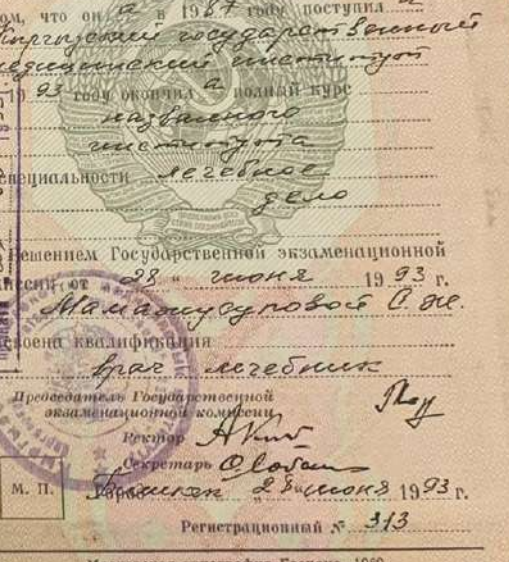 ом, что он а в 1987 году поступил а
Кыргызский государственный
медицинский институт
19 93 году окончил а полный курс
названного
института
специальности лечебное
дело
Решением Государственной экзаменационной
комиссии от 28 " июня 19 93 г.
Мамажусуповой С. Ж.
своена квалификация
врач лечебник
Председатель Государственной
экзаменационной комиссии
Ректор
Секретарь
М. П. Город Бишкек 28 " июня 1993 г.
Регистрационный № 313